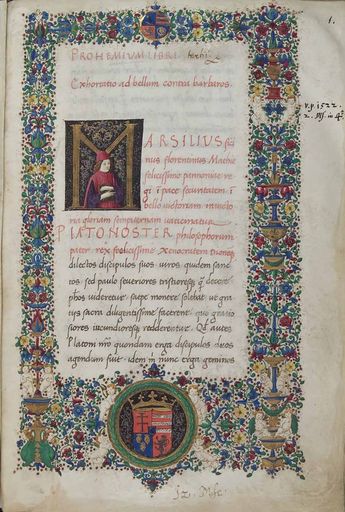 1.
PROHEMIUM LIBRI tertii
Exhortatio ad bellum contra barbaros.
v.p. 1522.
MARSILIUS fici
nus florentinus Mathie
felicissimo pannoniae re
gi ī pace securitatem ī
bello victoriam in victo
ria gloriam sempiternam vaticinatur
PLATO NOSTER philosophorum
pater rex foelicissime Xenocratem
dilectos discipulos suos viros quidem sanc
tos sed paulo severiores tristioresq; q̄
phos videretur saepe monere solebat ut gra
tiis sacra diligentissime facerent quo gratio
siores iucundioresq; redderentur. Qd̄ autem
Platoni nr̄o quondam erga discipulos duos
agendum fuit idem in nunc erga geminos